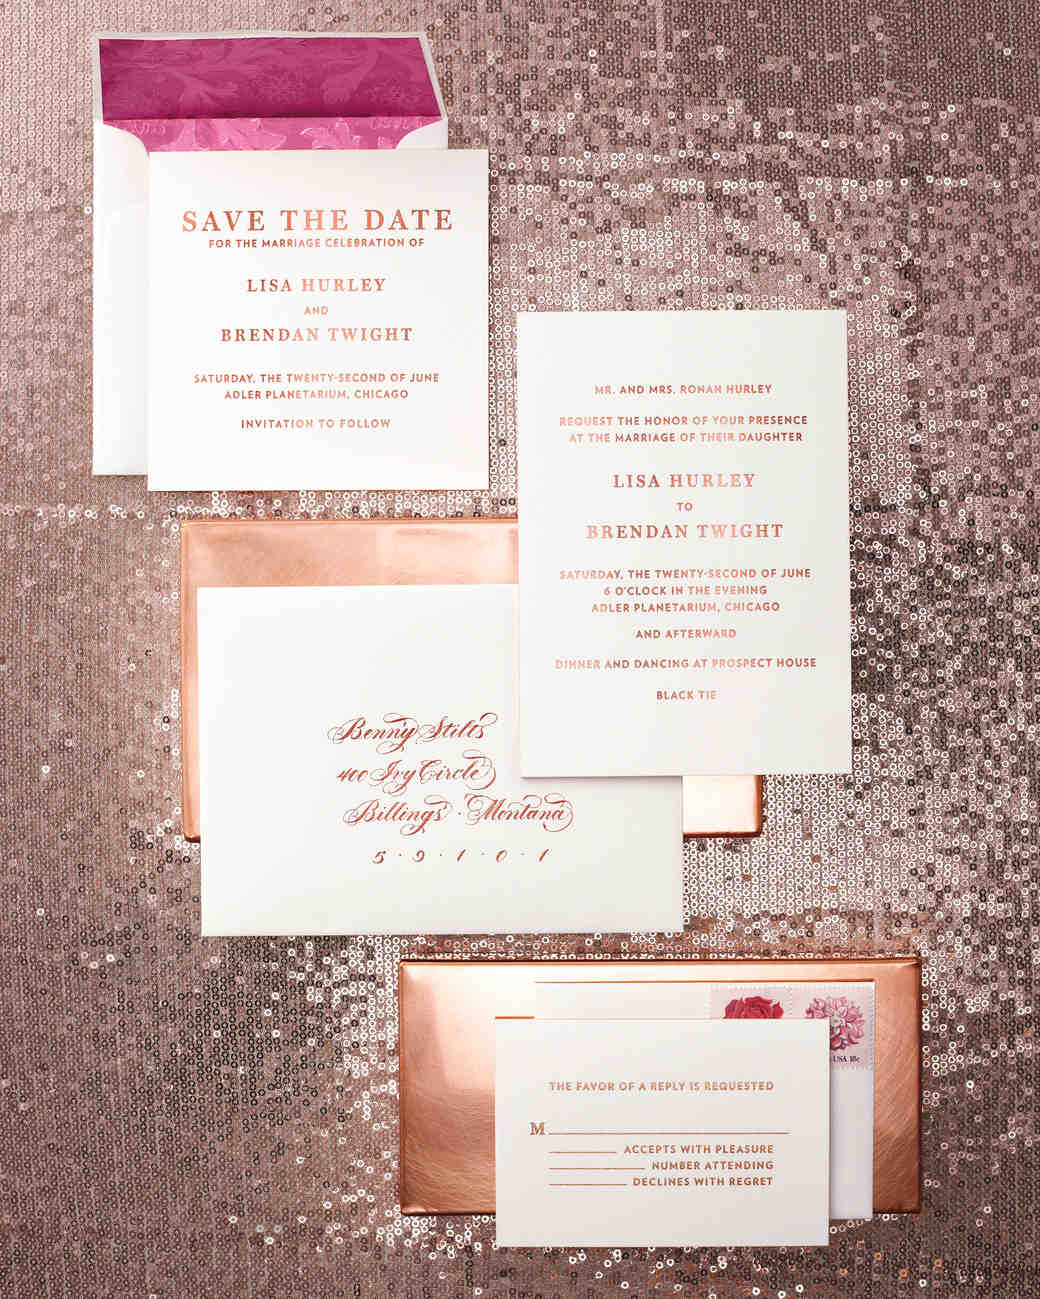 SAVE THE DATE
FOR THE MARRIAGE CELEBRATION OF
LISA HURLEY
AND
BRENDAN TWIGHT
SATURDAY, THE TWENTY-SECOND OF JUNE
ADLER PLANETARIUM, CHICAGO
INVITATION TO FOLLOW
MR. AND MRS. RONAN HURLEY
REQUEST THE HONOR OF YOUR PRESENCE
AT THE MARRIAGE OF THEIR DAUGHTER
LISA HURLEY
TO
BRENDAN TWIGHT
SATURDAY, THE TWENTY-SECOND OF JUNE
6 O'CLOCK IN THE EVENING
ADLER PLANETARIUM, CHICAGO
AND AFTERWARD
DINNER AND DANCING AT PROSPECT HOUSE
BLACK TIE
Benny Stilts
400 Ivy Circle
Billings · Montana
5 · 9 · 1 · 0 · 1
USA 18c
THE FAVOR OF A REPLY IS REQUESTED
M
ACCEPTS WITH PLEASURE
NUMBER ATTENDING
DECLINES WITH REGRET